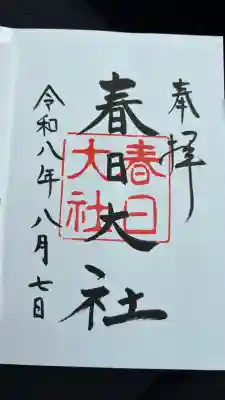 奉拝
春日大社
春日大社
令和八年八月七日